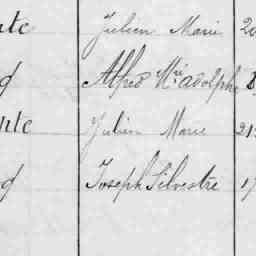 nte Julien Marie 20
d Alfred Mie adolphe 8
nte Julien Marie 21
d Joseph Silvestre 17